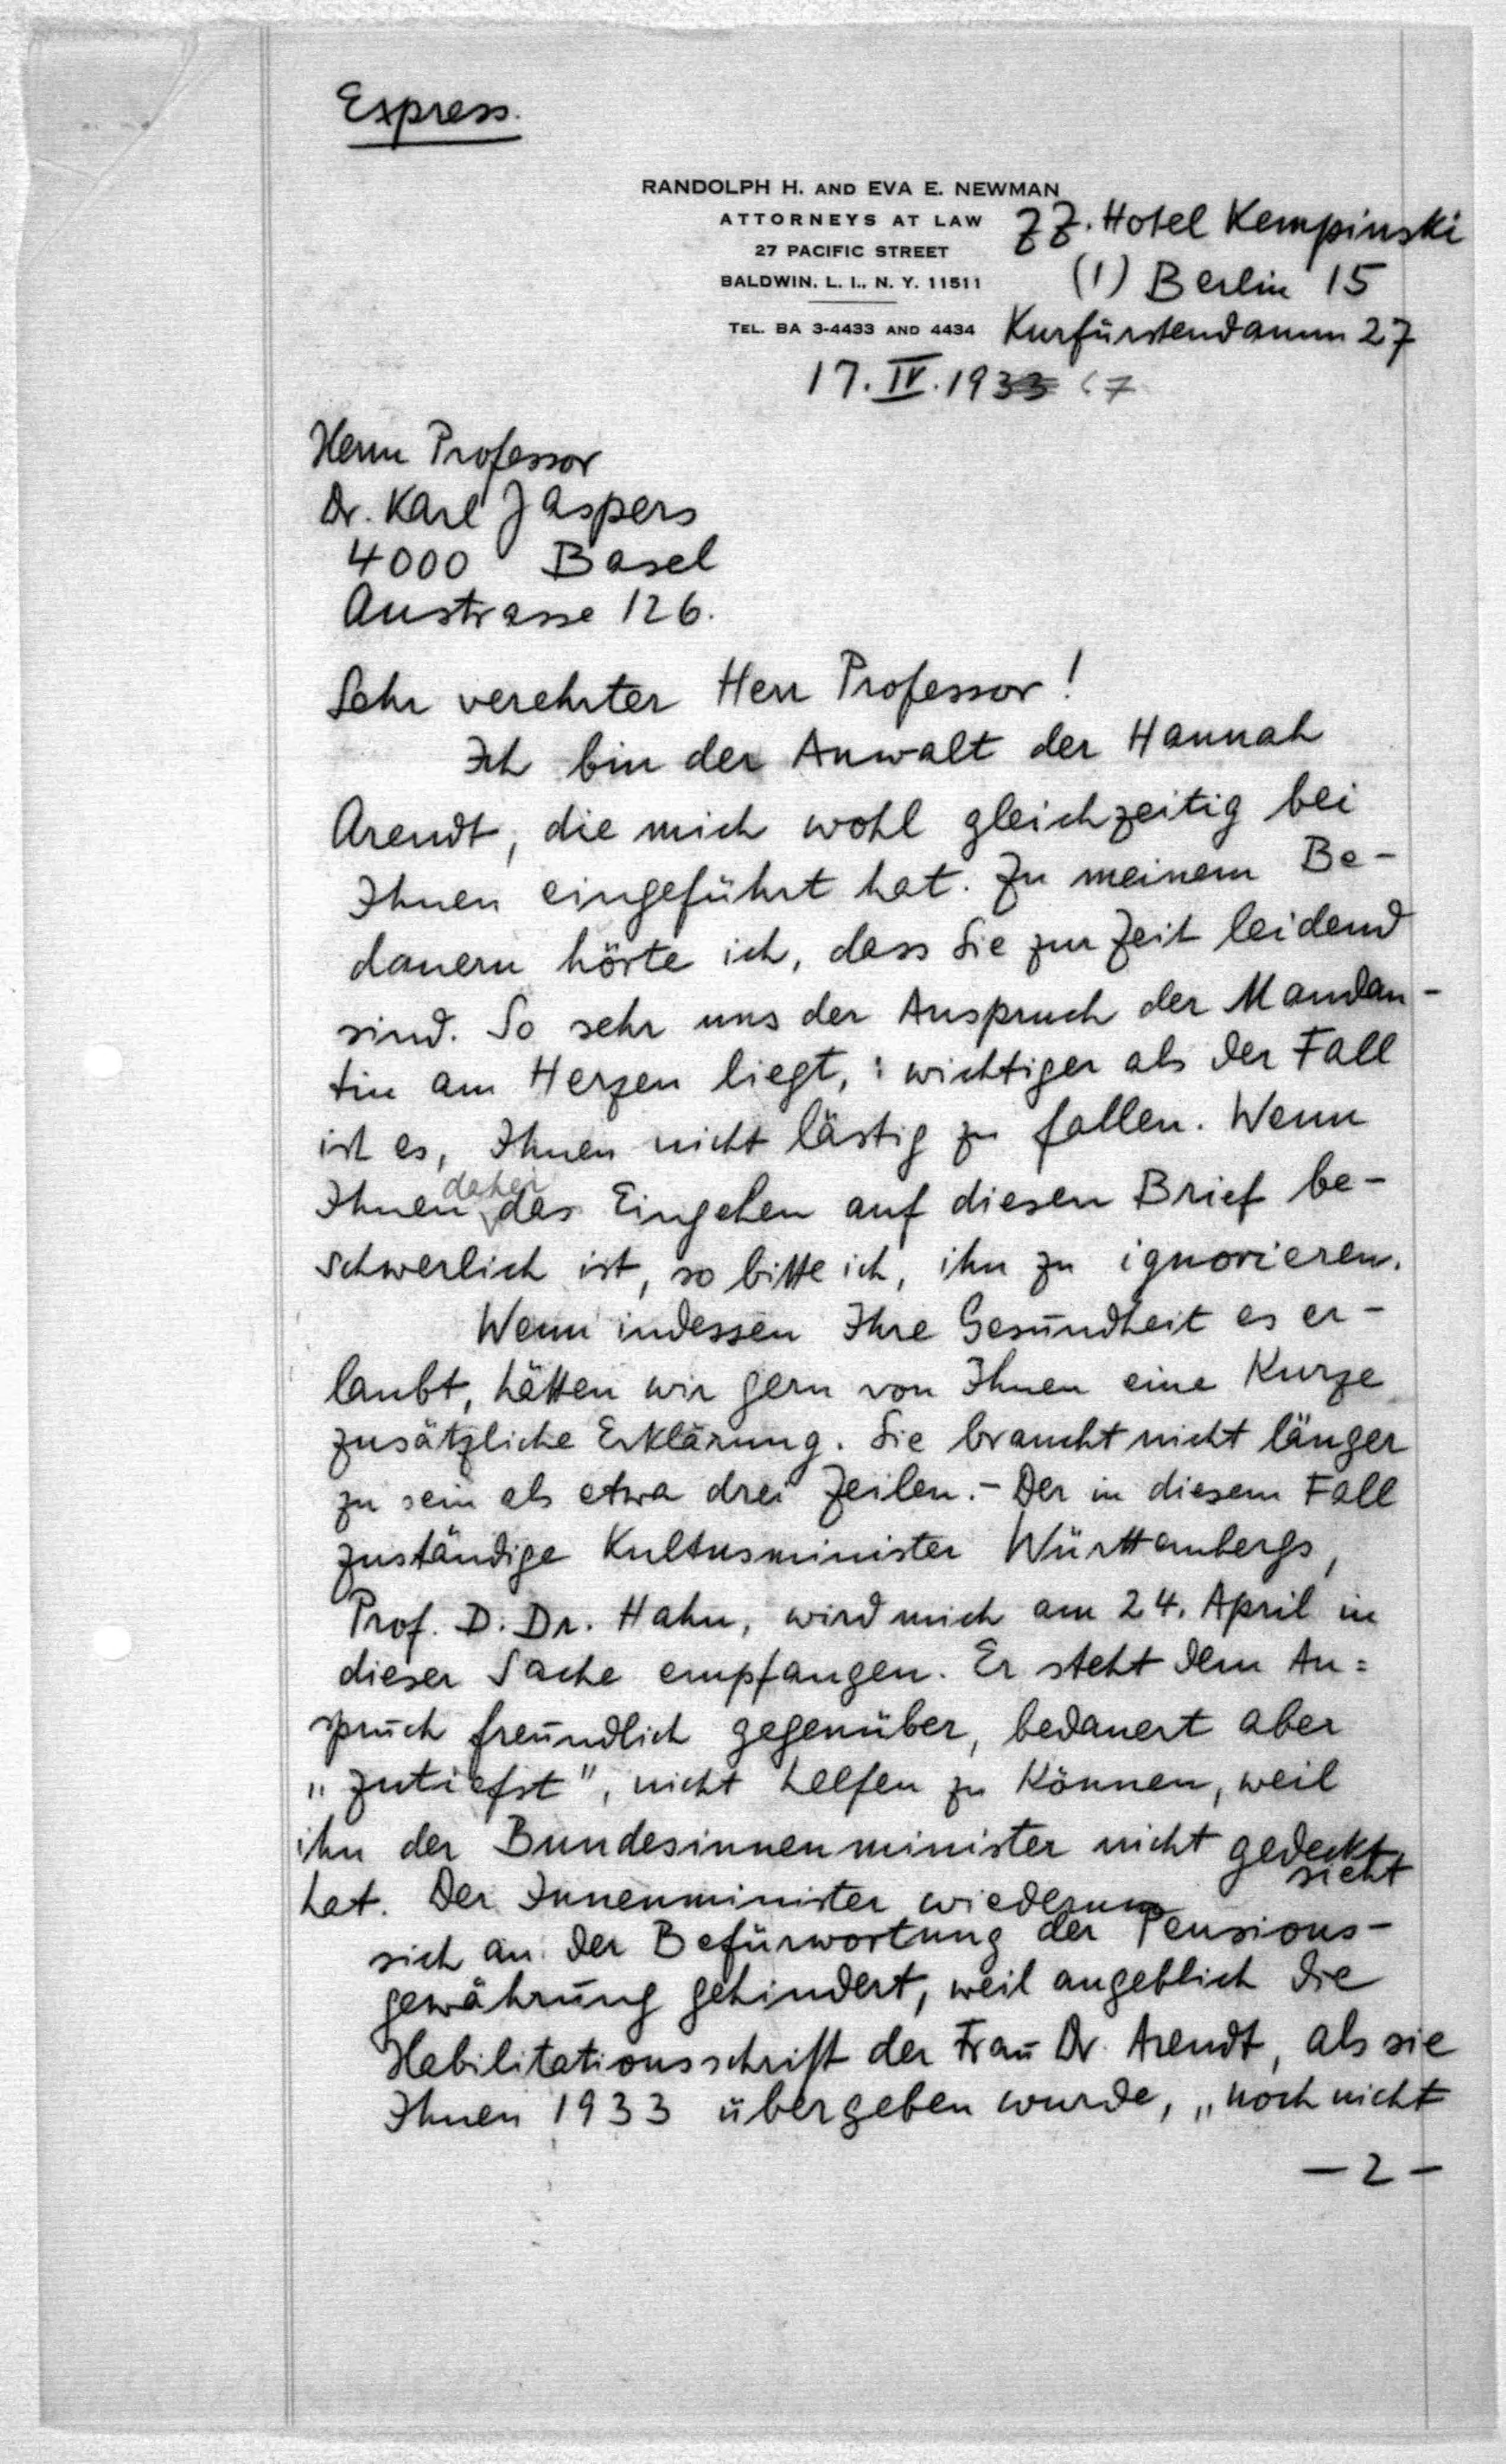 Express.
RANDOLPH H. AND EVA E. NEWMAN
ATTORNEYS AT LAW
27 PACIFIC STREET
BALDWIN, L. I., N. Y. 11511
TEL. BA 3-4433 AND 4434
ZZ. Hotel Kempinski
(1) Berlin 15
Kurfürstendamm 27
17. IV. 1933 67
Herrn Professor
Dr. Karl Jaspers
4000 Basel
Austrasse 126.
Sehr verehrter Herr Professor!
Ich bin der Anwalt der Hannah
Arendt, die mich wohl gleichzeitig bei
Ihnen eingeführt hat. Zu meinem Be-
dauern hörte ich, dass Sie zur Zeit leidend
sind. So sehr uns der Anspruch der Mandan-
tin am Herzen liegt, : wichtiger als der Fall
ist es, Ihnen nicht lästig zu fallen. Wenn
Ihnen daher das Eingehen auf diesen Brief be-
schwerlich ist, so bitte ich, ihn zu ignorieren.
Wenn indessen Ihre Gesundheit es er-
laubt, hätten wir gern von Ihnen eine Kurze
zusätzliche Erklärung. Sie braucht nicht länger
zu sein als etwa drei Zeilen.- Der in diesem Fall
zuständige Kultusminister Württembergs,
Prof. D. Dr. Hahn, wird mich am 24. April in
dieser Sache empfangen. Er steht dem An=
spruch freundlich gegenüber, bedauert aber
„zutiefst", nicht helfen zu Können, weil
ihn der Bundesinnenminister nicht gedeckt
hat. Der Innenminister wiederum sieht
sich an der Befürwortung der Pensions-
gewährung gehindert, weil angeblich die
Habilitationsschrift der Frau Dr. Arendt, als sie
Ihnen 1933 übergeben wurde, „noch nicht
- 2 -